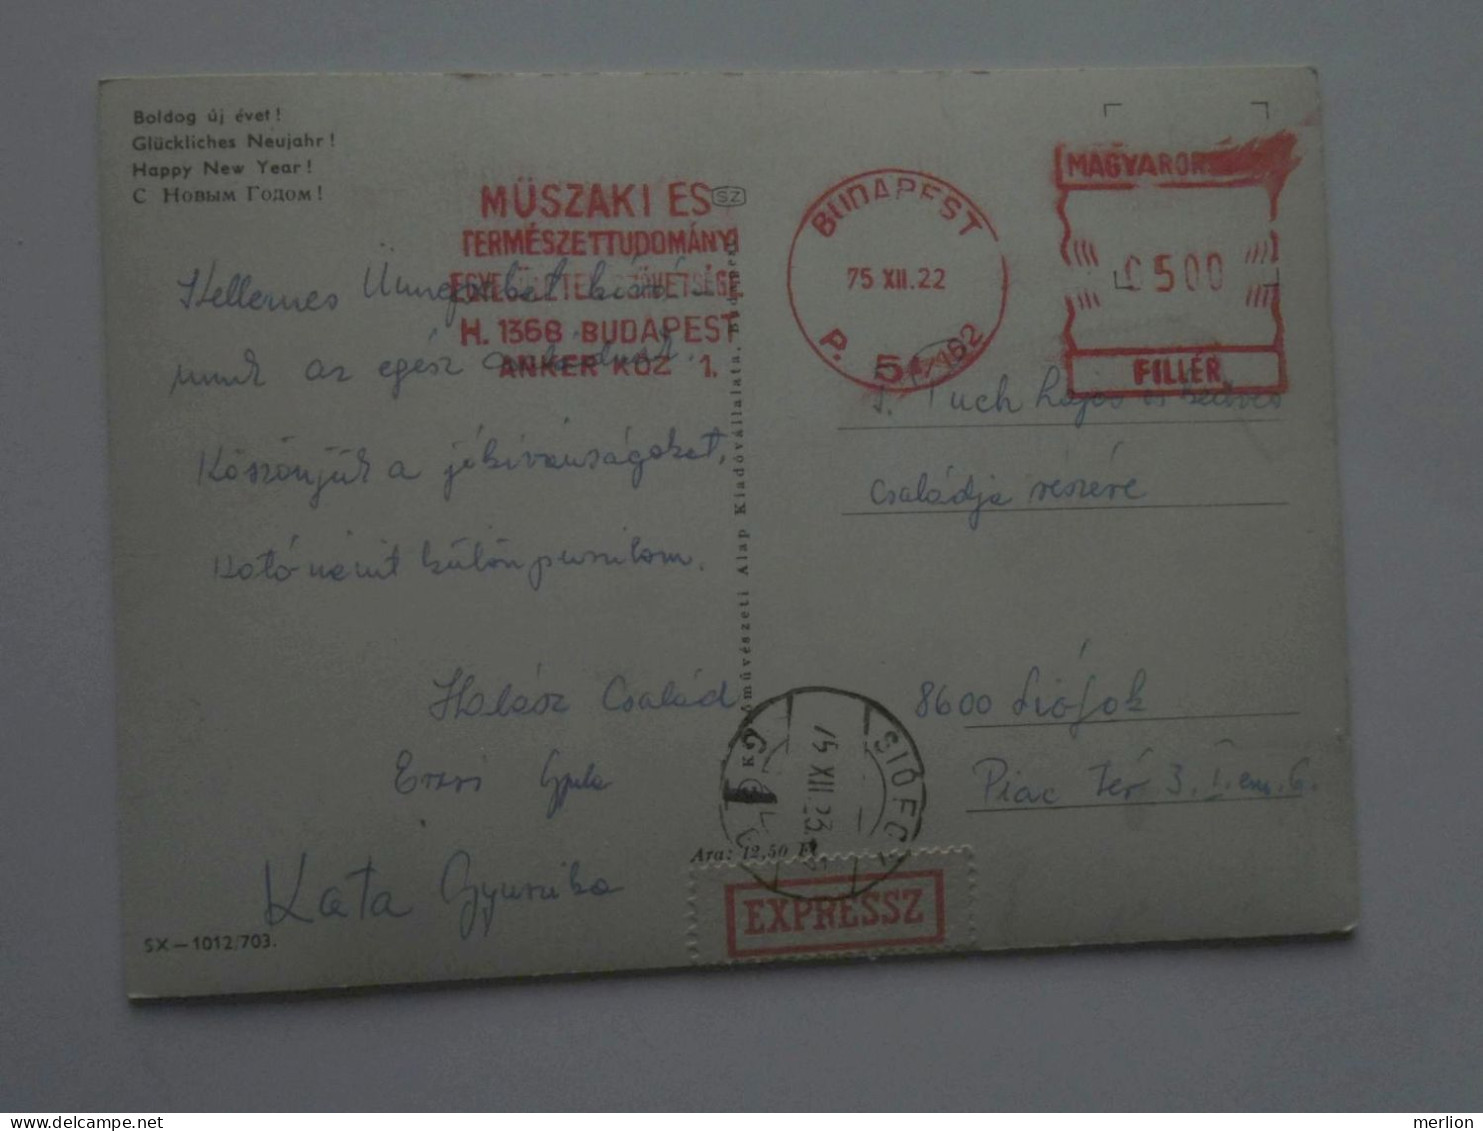 Boldog új évet!
Glückliches Neujahr!
Happy New Year!
С Новым Годом!
MÜSZAKI ES
SZ
TERMÉSZETTUDOMÁNYI
EGYESÜLETEK SZÖVETSÉGE
H. 1368 BUDAPEST
ANKER KÖZ 1.
BUDAPEST
75 XII. 22
P. 54/162
MAGYARORSZ
0500
FILLÉR
Kellemes Ünnepeket kivá-
nunk az egész családnak.
Köszönjük a jókívánságokat,
Kató nénit külön puszilom.
Halász Család
Erzsi Gyula
Kata Gyuszika
SX-1012/703.
Képzőművészeti Alap Kiadóvállalata, Budapest
Ara: 12,50 Ft
Puch Lajos és kedves
családja részére
8600 Siófok
Piac tér 3. I. em. 6.
SIÓFOK
75 XII. 23.
EXPRESSZ
merlion